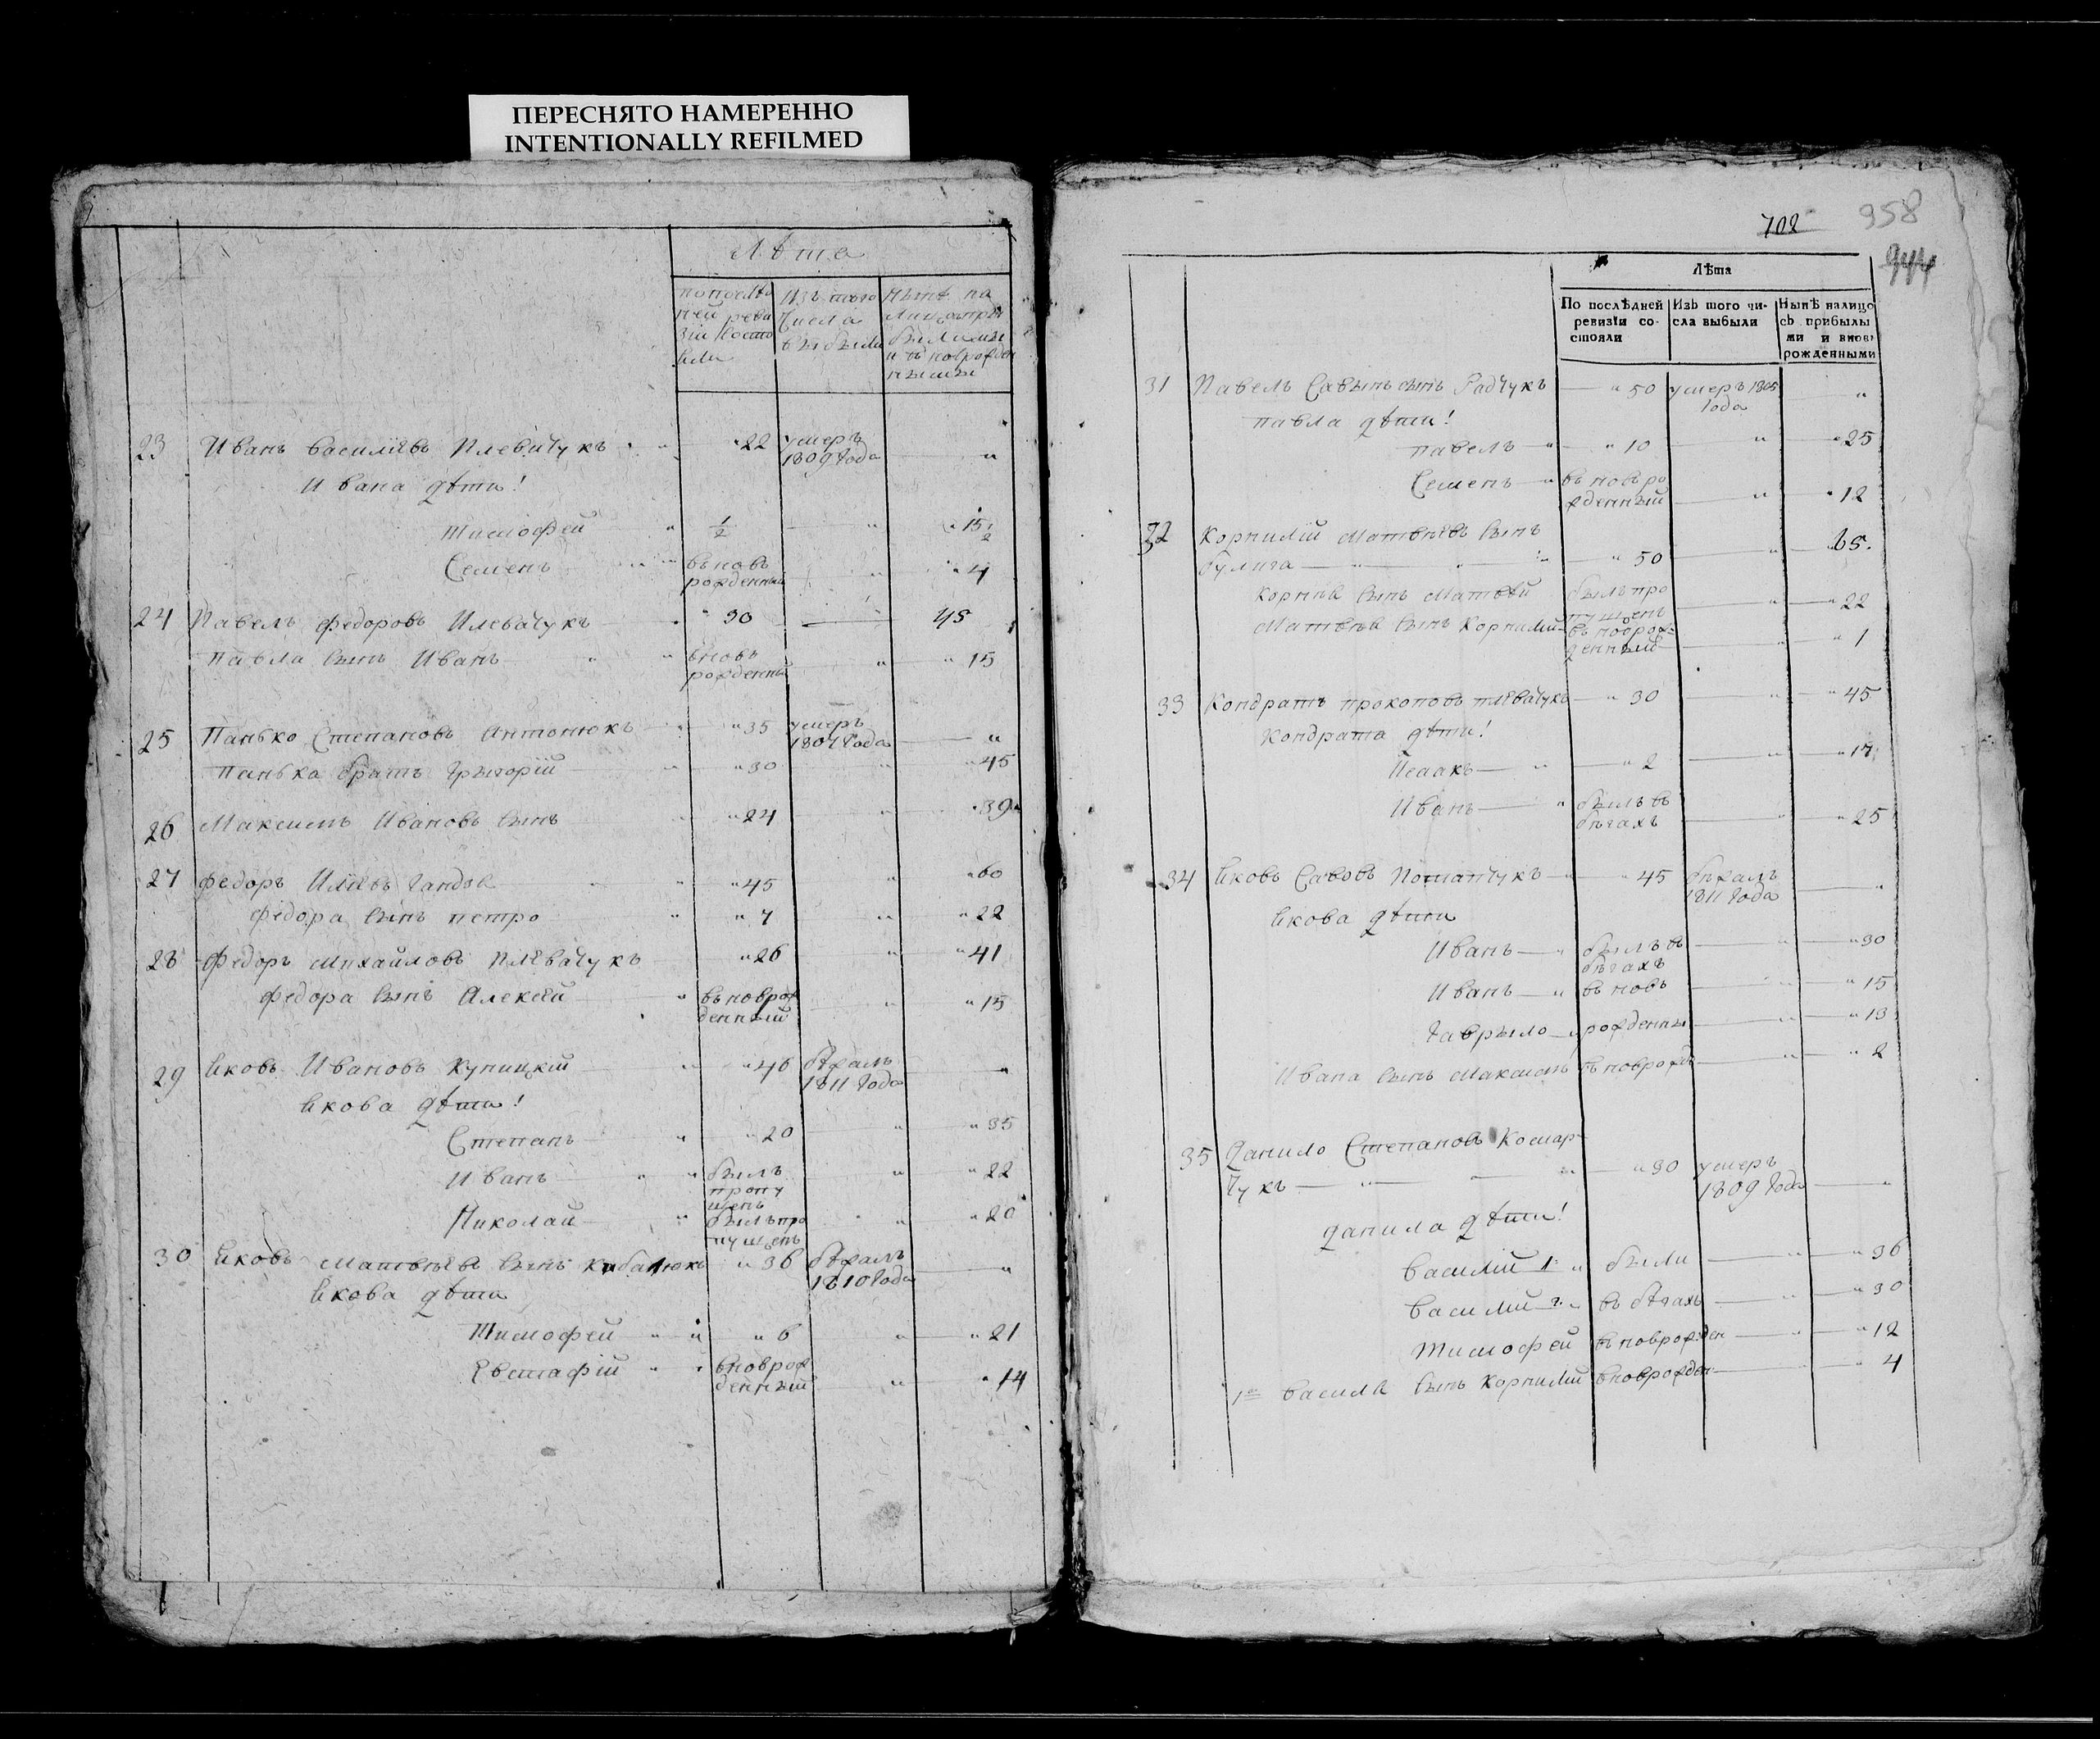 ПЕРЕСНЯТО НАМЕРЕННО
INTENTIONALLY REFILMED
Лѣта
по послѣд ней реви зіи состо яли
Изъ того числа выбыли
Нынѣ на лицо съ при былыми и въновь рожден ными
23 Иванъ Василіевъ Плевачукъ " 22 умеръ 1809 Года "
Ивана дѣти!
Тимофей " 1/2 " " 15 1/2
Семенъ " въновь рожденный " " 4
24 Павелъ Федоровъ Плевачукъ " 30 45
Павла сынъ Иванъ " вновь рожденны " " 15
25 Панько Степановъ Антонюкъ " 35 умеръ 1807 Года "
Панька братъ Григорій " 30 " " 45
26 Максимъ Ивановъ сынъ " 24 " " 39
27 Федоръ Иліевъ " 45 " " 60
Федора сынъ Петро " " 7 " " 22
28 Федоръ Михайловъ Плевачукъ " 26 " " 41
Федора сынъ Алексей " въноврож денный " " 15
29 Яковъ Ивановъ Купицкій " 46 бѣжалъ 1811 Года "
Якова дѣти!
Степанъ " " 20 " " 35
Иванъ " былъ пропу щенъ " " 22
Николай " былъ про пущенъ " " 20
30 Яковъ Матвѣевъ сынъ Кабанюкъ " 36 бѣжалъ 1810 Года "
Якова дѣти
Тимофей " " 6 " " 21
Евстафій " вноврож денный " " 14
702 958
944
Лѣта
По послѣдней ревизіи со- стояли
Изъ того чи- сла выбыли
Нынѣ налицо съ прибылы ми и внов рожденными
31 Павелъ Савынъ сынъ Радчукъ " 50 умеръ 1805 Года "
Павла дѣти!
Павелъ " " 10 " " 25
Семенъ " въновъро жденный " " 12
32 Корнилій Матвѣевъ сынъ
Булига " " " 50 " 65.
Корнѣя сынъ Матвей былъ про пущенъ " " 22
Матвѣя сынъ Корнилий въноврож= денный " " 1
33 Кондратъ Прокоповъ Плевачукъ " 30 " " 45
Кондрата дѣти!
Исаакъ " " 2 " " 17
Иванъ " былъ въ бѣгахъ " " 25
34 Яковъ Савовъ " 45 бѣжалъ 1811 Года "
Якова дѣти
Иванъ " былъ въ бѣгахъ " " 30
Иванъ " въновь " " 15
Гаврыло " рожденны " " 13
Ивана сынъ Максимъ въноврожд " " 2
35 Данило Степановъ Комар-
чукъ " " " 90 умеръ 1809 Года "
Данила дѣти!
Василий 1. " были " " 36
Василий 2. " въ бѣгахъ " 30
Тимофей въноврожден " " 12
1го Василя сынъ Корнилий вноврожден " 4